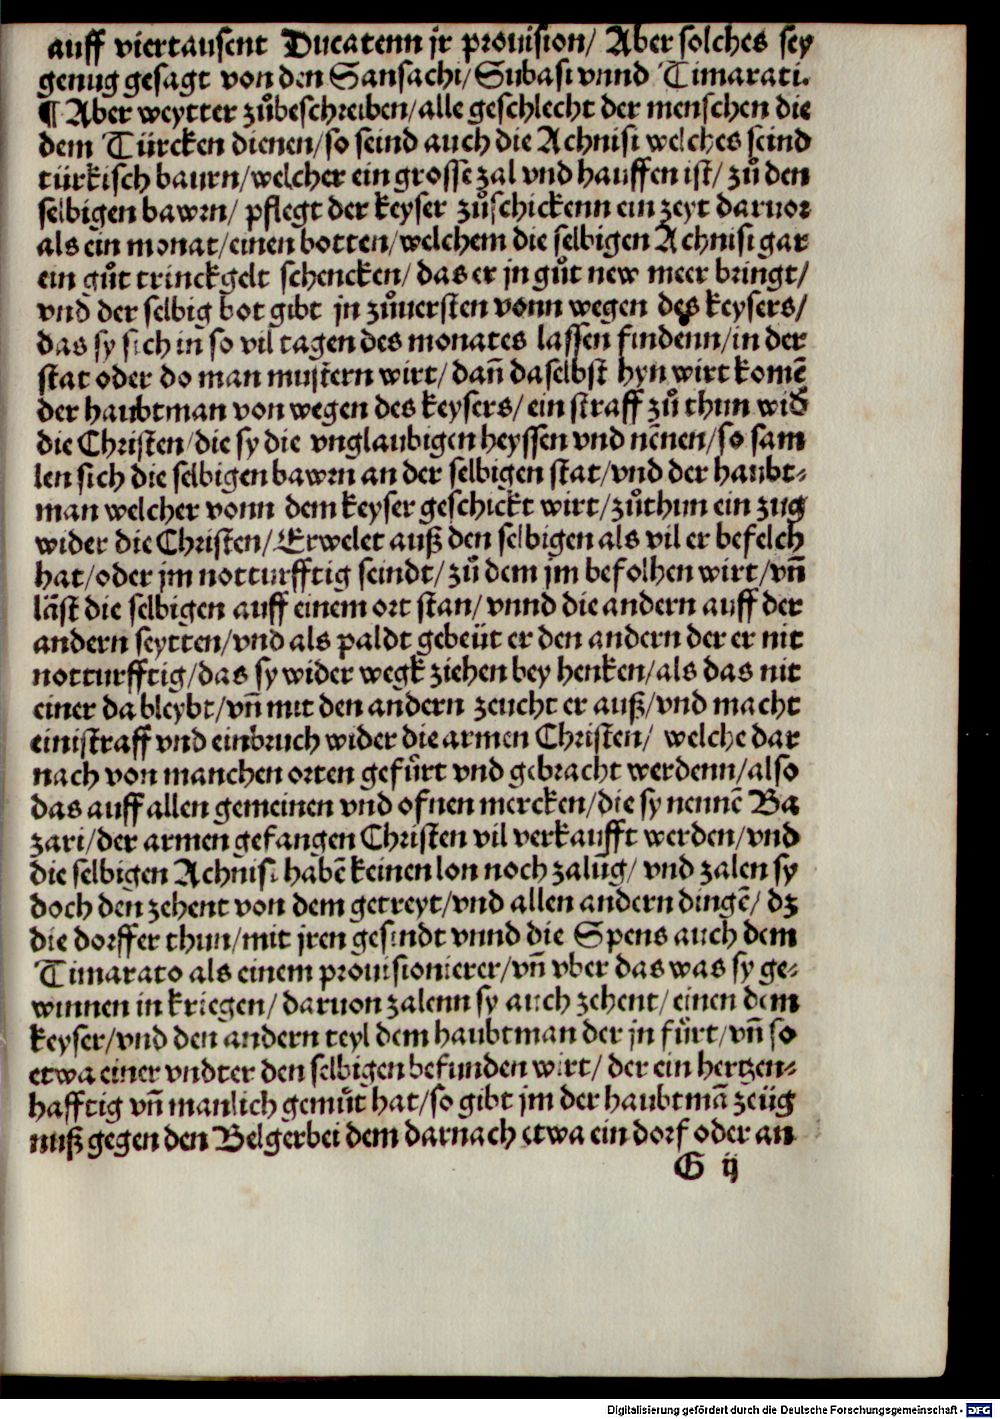 auff viertausent Ducatenn jr prouision/ Aber solches sey
genug gesagt von den Sansachi/ Subasi vnnd Timarati.
¶ Aber weytter zůbeschreiben/ alle geschlecht der menschen die
dem Türcken dienen/ so seind auch die Achnisi welches seind
türkisch baurn/ welcher ein grosse zal vnd hauffen ist/ zů den
selbigen bawrn/ pflegt der keyser zůschickenn ein zeyt daruor
als ein monat/ einen botten/ welchem die selbigen Achnisi gar
ein gůt trinckgelt schencken/ das er jn gůt new meer bringt/
vnd der selbig bot gibt jn zůuersten vonn wegen des keysers/
das sy sich in̄ so vil tagen des monates lassen findenn/ in der
stat oder do man mustern wirt/ dan̄ daselbst hyn wirt komē
der haubtman von wegen des keysers/ ein straff zů thun wid̕
die Christen/ die sy die vnglaubigen heyssen vnd nēnen/ so sam
len sich die selbigen bawrn an der selbigen stat/ vnd der haubt⸗
man welcher vonn dem keyser geschickt wirt/ zůthun ein zug
wider die Christen/ Erwelet auß den selbigen als vil er befelch
hat/ oder jm notturfftig seindt/ zů dem jm befolhen wirt/ vn̄
lāst die selbigen auff einem ort stan/ vnnd die andern auff der
andern seytten/ vnd als paldt gebeüt er den andern der er nit
notturfftig/ das sy wider wegk ziehen bey henken/ als das nit
einer da bleybt/ vn̄ mit den andern zeucht er auß/ vnd macht
ein straff vnd einbruch wider die armen Christen/ welche dar
nach von manchen orten gefůrt vnd gebracht werdenn/ also
das auff allen gemeinen vnd ofnen mercken/ die sy nennē Ba
zari/ der armen gefangen Christen vil verkaufft werden/ vnd
die selbigen Achnisi habē keinen lon noch zalūg/ vnd zalen sy
doch den zehent von dem getreyt/ vnd allen andern dingē/ dz
die dorffer thun/ mit jren gesindt vnnd die Spens auch dem
Timarato als einem prouisionierer/ vn̄ vber das was sy ge⸗
winnen in kriegen/ daruon zalenn sy auch zehent/ einen dem
keyser/ vnd den andern teyl dem haubtman der jn fůrt/ vn̄ so
etwa einer vndter den selbigen befunden wirt/ der ein hertzen⸗
hafftig vn̄ manlich gemůt hat/ so gibt jm der haubtmā zeüg
nuß gegen den Belgerbei dem darnach etwa ein dorf oder an
G ij
Digitalisierung gefördert durch die Deutsche Forschungsgemeinschaft - DFG